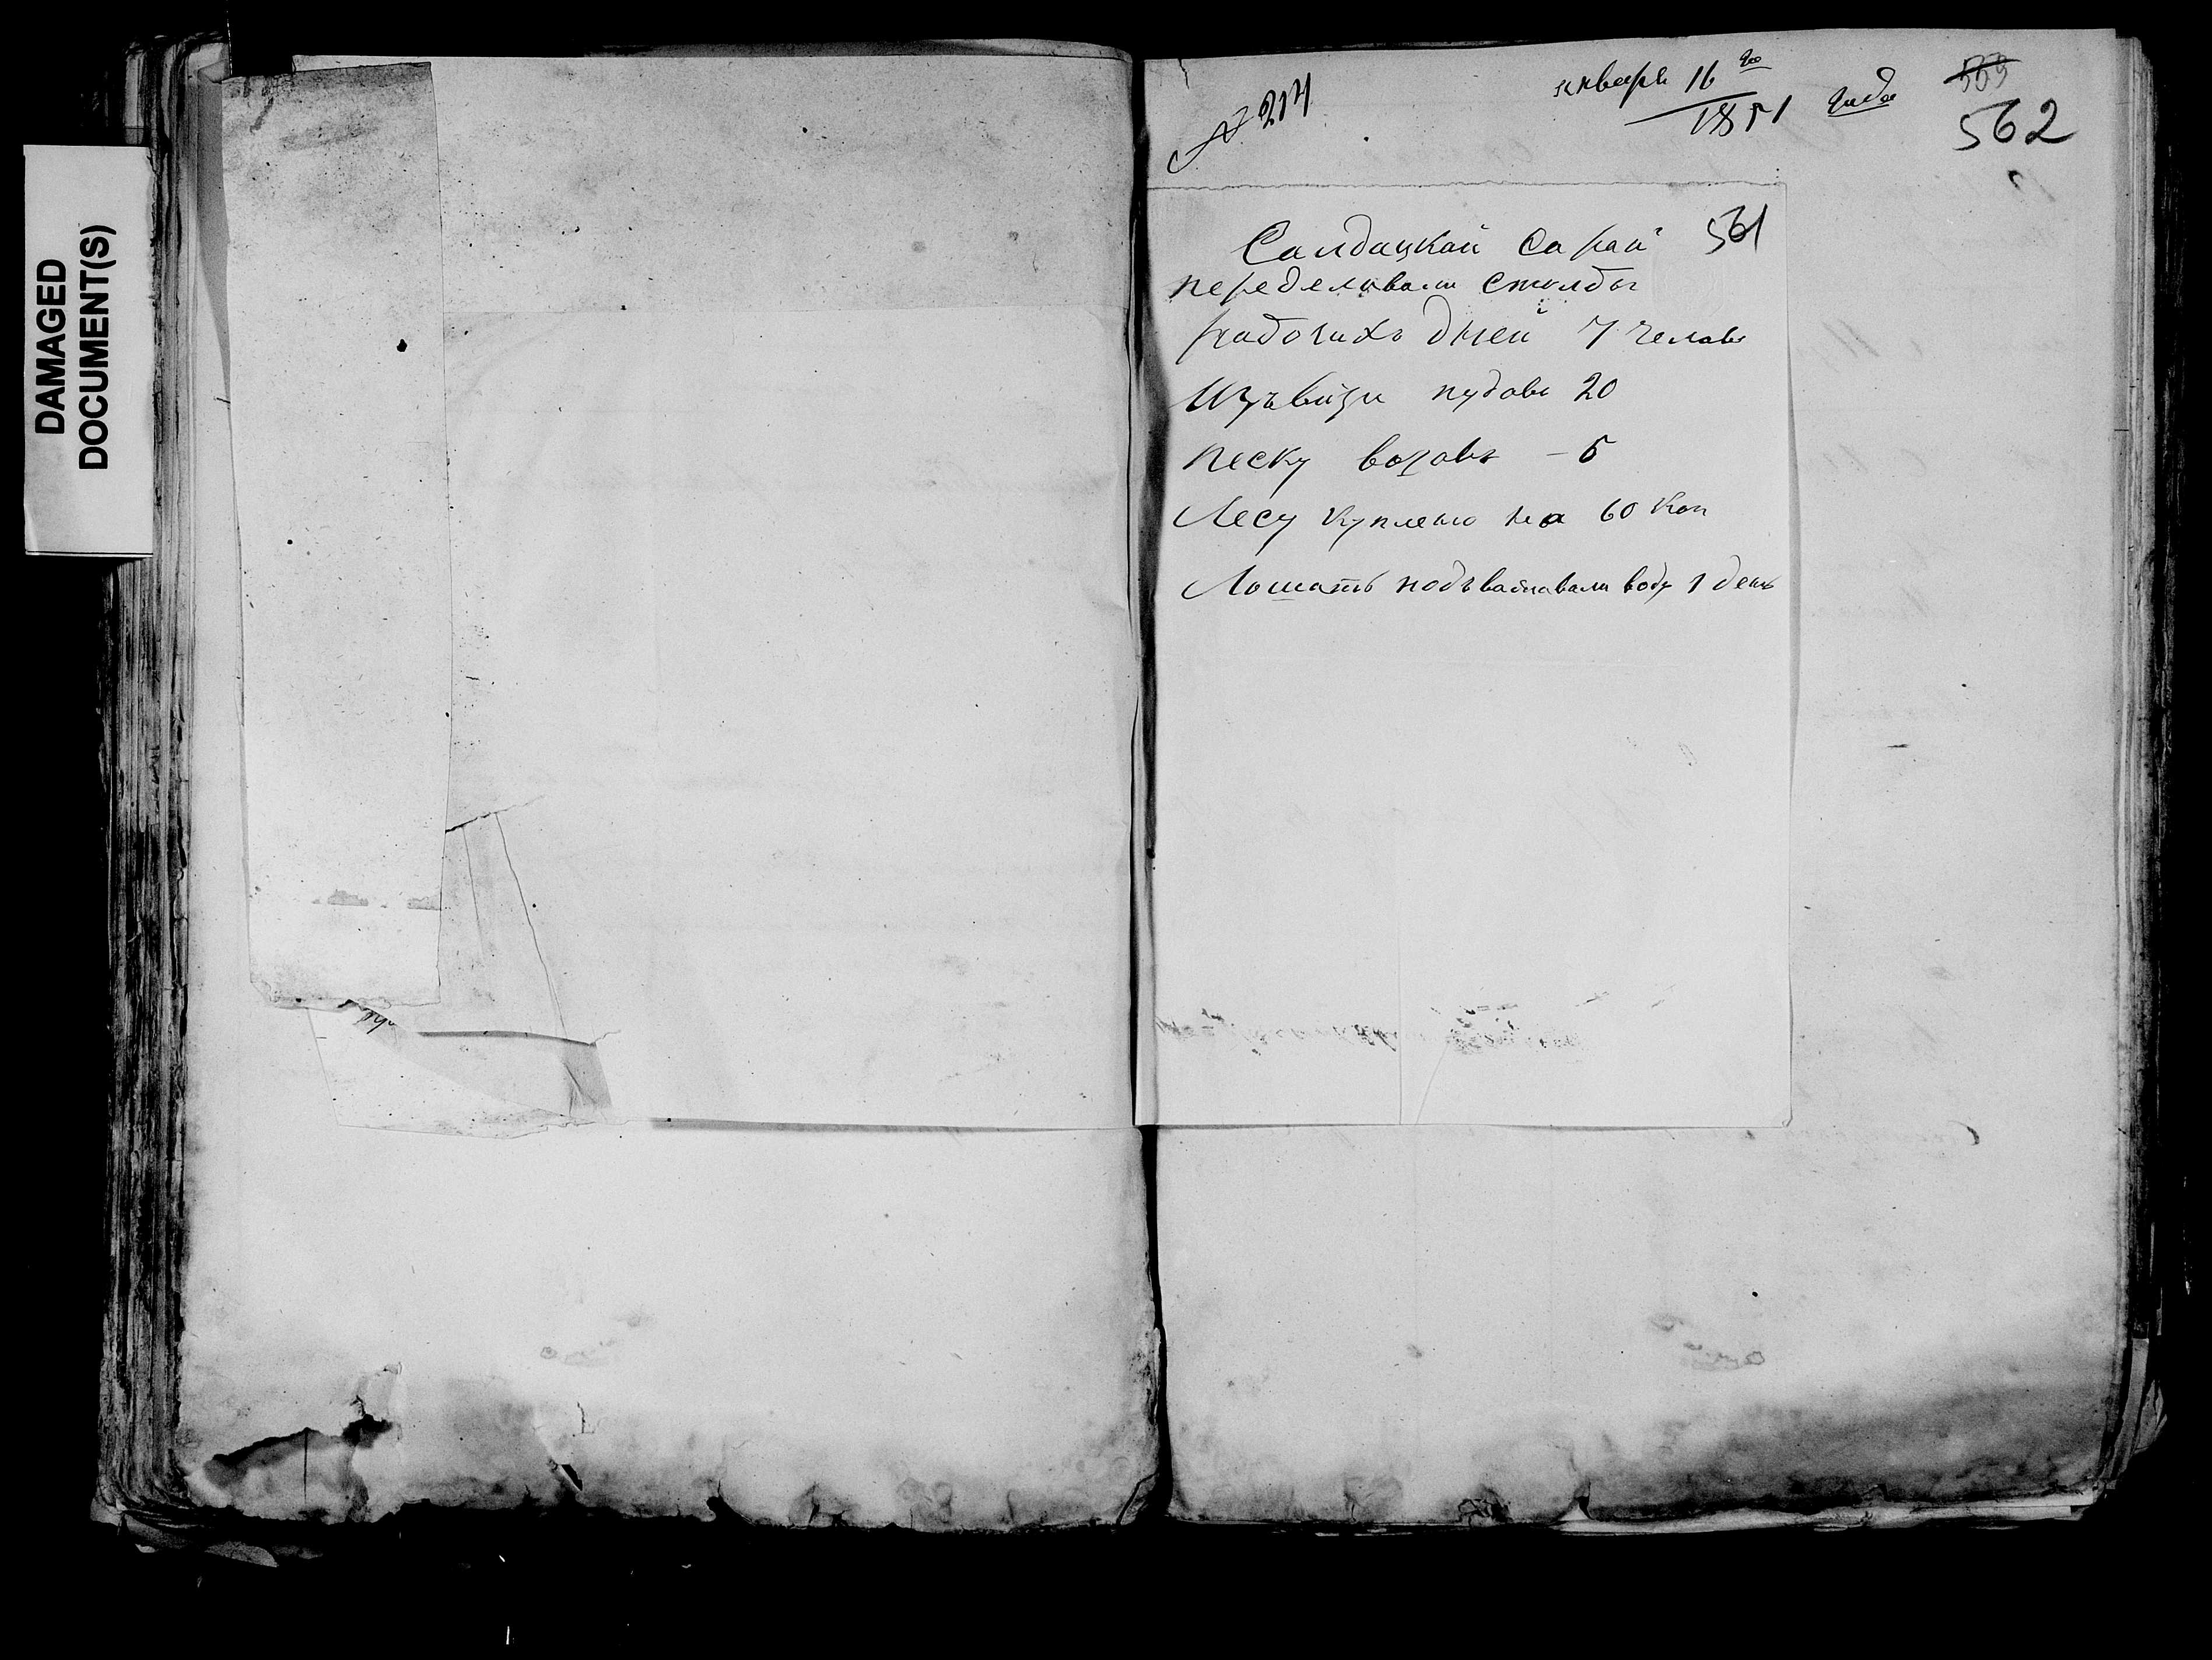 DAMAGED
DOCUMENT(S)
№ 214
январь 16 го
1851 года
569
562
561
Салдацкай Сарай
переделывали столбы
рабочихъ дней 7 челавъ
Изъвѣзи пудавъ 20
песку возавъ – 5
Лесу куплено на 60 коп
Лошать подъваживали воду 1 день